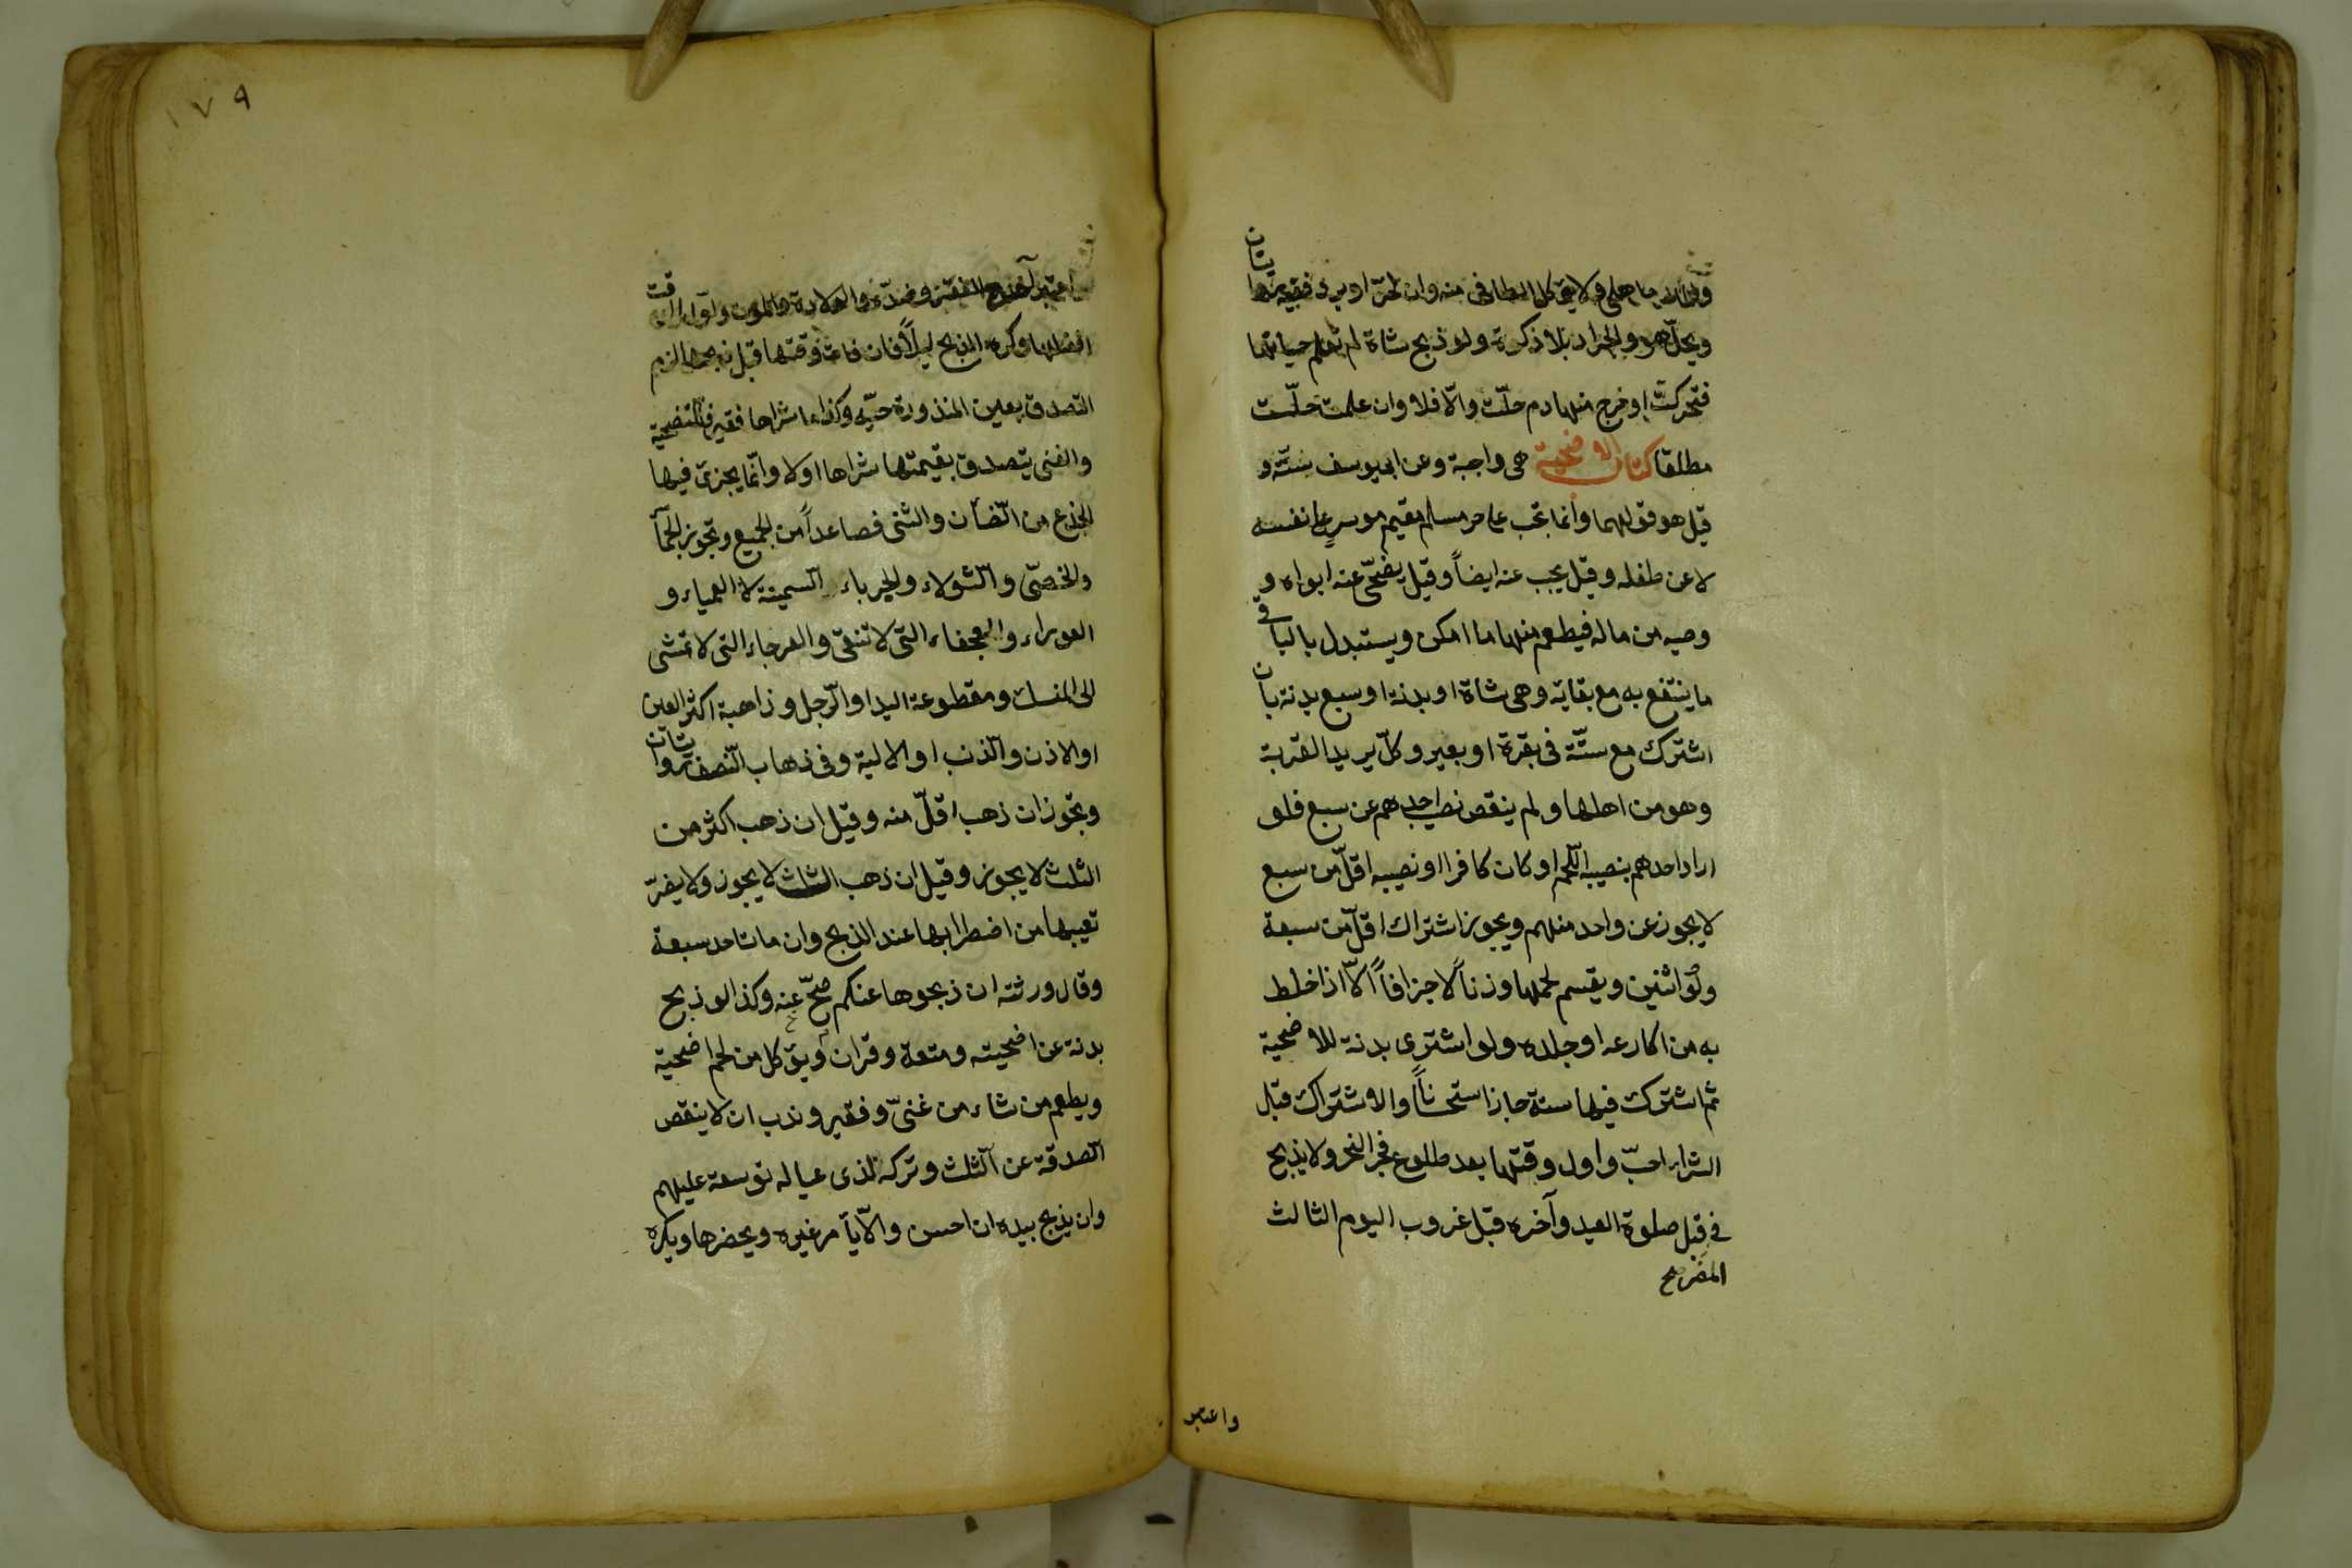 ولا يؤكل الطافى منه وان لحرّ او برد ففيه روايتان
ويحلّ هو والجراد بلا ذكوة ولو ذبح شاة لم تعلم حياتها
فتحركت او خرج منها دم حلّت والّا فلا وان علمت حلّت
مطلقا كتاب الاضحية هى واجبة وعن ابى يوسف سنّة و
قيل هو قولهما وانما تجب على حر مسلم مقيم موسر على نفسه
لا عن طفله وقيل يجب عنه ايضاً وقيل يضحّى عنه ابواه و
وصيه من ماله فيطعم منها ما امكن ويستبدل بالباقى
ما ينتفع به مع بقائه وهى شاة او بدنة او سبع بدنة بان
اشترك مع ستّة فى بقرة او بعير وكلّ يريد القربة
وهو من اهلها ولم ينقص نصيب احدهم عن سبع فلو
اراد احدهم بنصيبه اللّحم او كان كافرا او نصيبه اقلّ من سبع
لا يجوز عن واحد منهم ويجوز اشتراك اقلّ من سبعة
ولو اثنين ويقسم لحمها وزناً لا جزافاً الّا اذا خلط
به من اكارعه او جلده ولو اشترى بدنة للاضحية
ثم اشترك فيها ستة جاز استحساناً والاشتراك قبل
الشراء احبّ واول وقتها بعد طلوع فجر النحر ولا يذبح
فى المصر قبل صلوة العيد وآخره قبل غروب اليوم الثالث
واعتبر
١٧٩
واعتبر آخره للفقير وضدّه والولادة والموت واولها
افضلها وكره الذبح ليلاً فان فات وقتها قبل ذبحها لزم
التصدق بعين المنذورة حيّة وكذا ما شراها فقير للتضحية
والغنى يتصدق بقيمتها شراها اولا وانّما يجزئ فيها
الجذع من الضأن والثنى فصاعداً من الجميع وتجوز الجمّآ
والخصّى والثّولاء والجرباء السمينة لا العمياء و
العوراء والعجفاء التّى لا تنقى والعرجاء التى لا تمشى
الى المنسك ومقطوعة اليد او الرّجل وذاهبة اكثر العين
او الاذن والذنب او الالية وفى ذهاب النّصف روايتان
وتجوز ان ذهب اقلّ منه وقيل ان ذهب اكثر من
الثلث لا يجوز وقيل ان ذهب الثلث لا يجوز ولا يضرّ
تعيبها من اضطرابها عند الذبح وان مات احد سبعة
وقال ورثته ان ذبحوها عنكم صحّ عنه وكذا لو ذبح
بدنة عن اضحيته ومتعة وقران ويؤكل من لحم اضحية
ويطعم من شاء من غنىّ وفقير وندب ان لا ينقص
الصدقة عن الثلث وتركه لذى عياله توسعة عليهم
وان يذبح بيده ان احسن والّا يأمر غيره ويحضرها ويكره